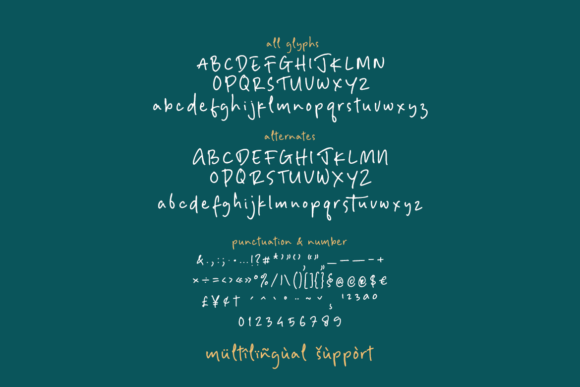 all glyphs
ABCDEFGHIJKLMN
OPQRSTUVWXYZ
abcdefghijklmnopqrstuvwxyz
alternates
ABCDEFGHIJKLMN
OPQRSTUVWXYZ
abcdefghijklmnopqrstuvwxyz
punctuation & number
&.,:;-•...!?#*'"‘’“”‚„_–—-+
×÷=<>‹›«»°%/|\()[]{}§@©®$€
£¥¢†´^`°¨~˘¸¹²³ªº
0123456789
mültîlïñgùàl šùppòrt